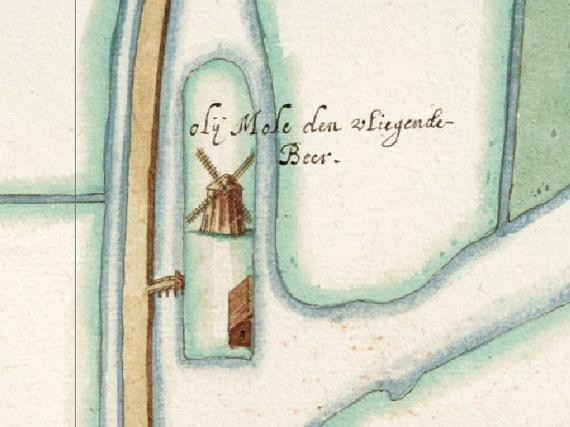 olÿ Mole den vliegende-
Beer.